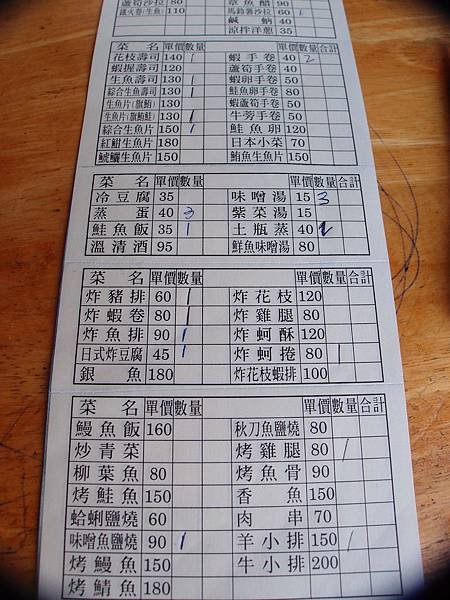 蘆筍沙拉 80 章魚醋 90
鐵火卷(生魚) 110 馬鈴薯沙拉 60 1
鹹蚋 40
涼拌洋蔥 35
菜名 單價 數量 菜名 單價 數量 合計
花枝壽司 140 1 蝦手卷 40 2
蝦握壽司 120 蘆筍手卷 40
生魚壽司 130 1 蝦卵手卷 50
綜合生魚壽司 130 1 鮭魚卵手卷 80
生魚片(旗鮪) 130 蝦蘆筍手卷 50
生魚片(旗鮪鮭) 130 1 牛蒡手卷 50
綜合生魚片 150 1 鮭魚卵 120
紅魽生魚片 180 日本小菜 70
鯱鱺生魚片 150 鮪魚生魚片 150
菜名 單價 數量 菜名 單價 數量 合計
冷豆腐 35 味噌湯 15 3
蒸蛋 40 3 紫菜湯 15
鮭魚飯 35 1 土瓶蒸 40
溫清酒 95 鮮魚味噌湯 80
菜名 單價 數量 菜名 單價 數量 合計
炸豬排 60 1 炸花枝 120
炸蝦卷 80 1 炸雞腿 80
炸魚排 90 1 炸蚵酥 120
日式炸豆腐 45 1 炸蚵捲 80 1
銀魚 180 炸花枝蝦排 100
菜名 單價 數量 菜名 單價 數量 合計
鰻魚飯 160 秋刀魚鹽燒 80
炒青菜 烤雞腿 80 1
柳葉魚 80 烤魚骨 90
烤鮭魚 150 香魚 150
蛤蜊鹽燒 60 肉串 70
味噌魚鹽燒 90 1 羊小排 150 1
烤鰻魚 150 牛小排 200
烤鯖魚 180